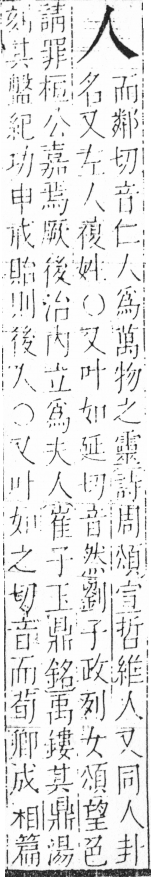 人
而鄰切音仁人為萬物之靈詩周頌宣哲維人又同人卦
名又左人複姓○又叶如延切音然劉子政列女頌望色
請罪桓公嘉焉厥後治內立為夫人崔子玉鼎銘禹鏤其鼎湯
刻其盤紀功申戒貽則後人○又叶如之切音而荀卿成相篇